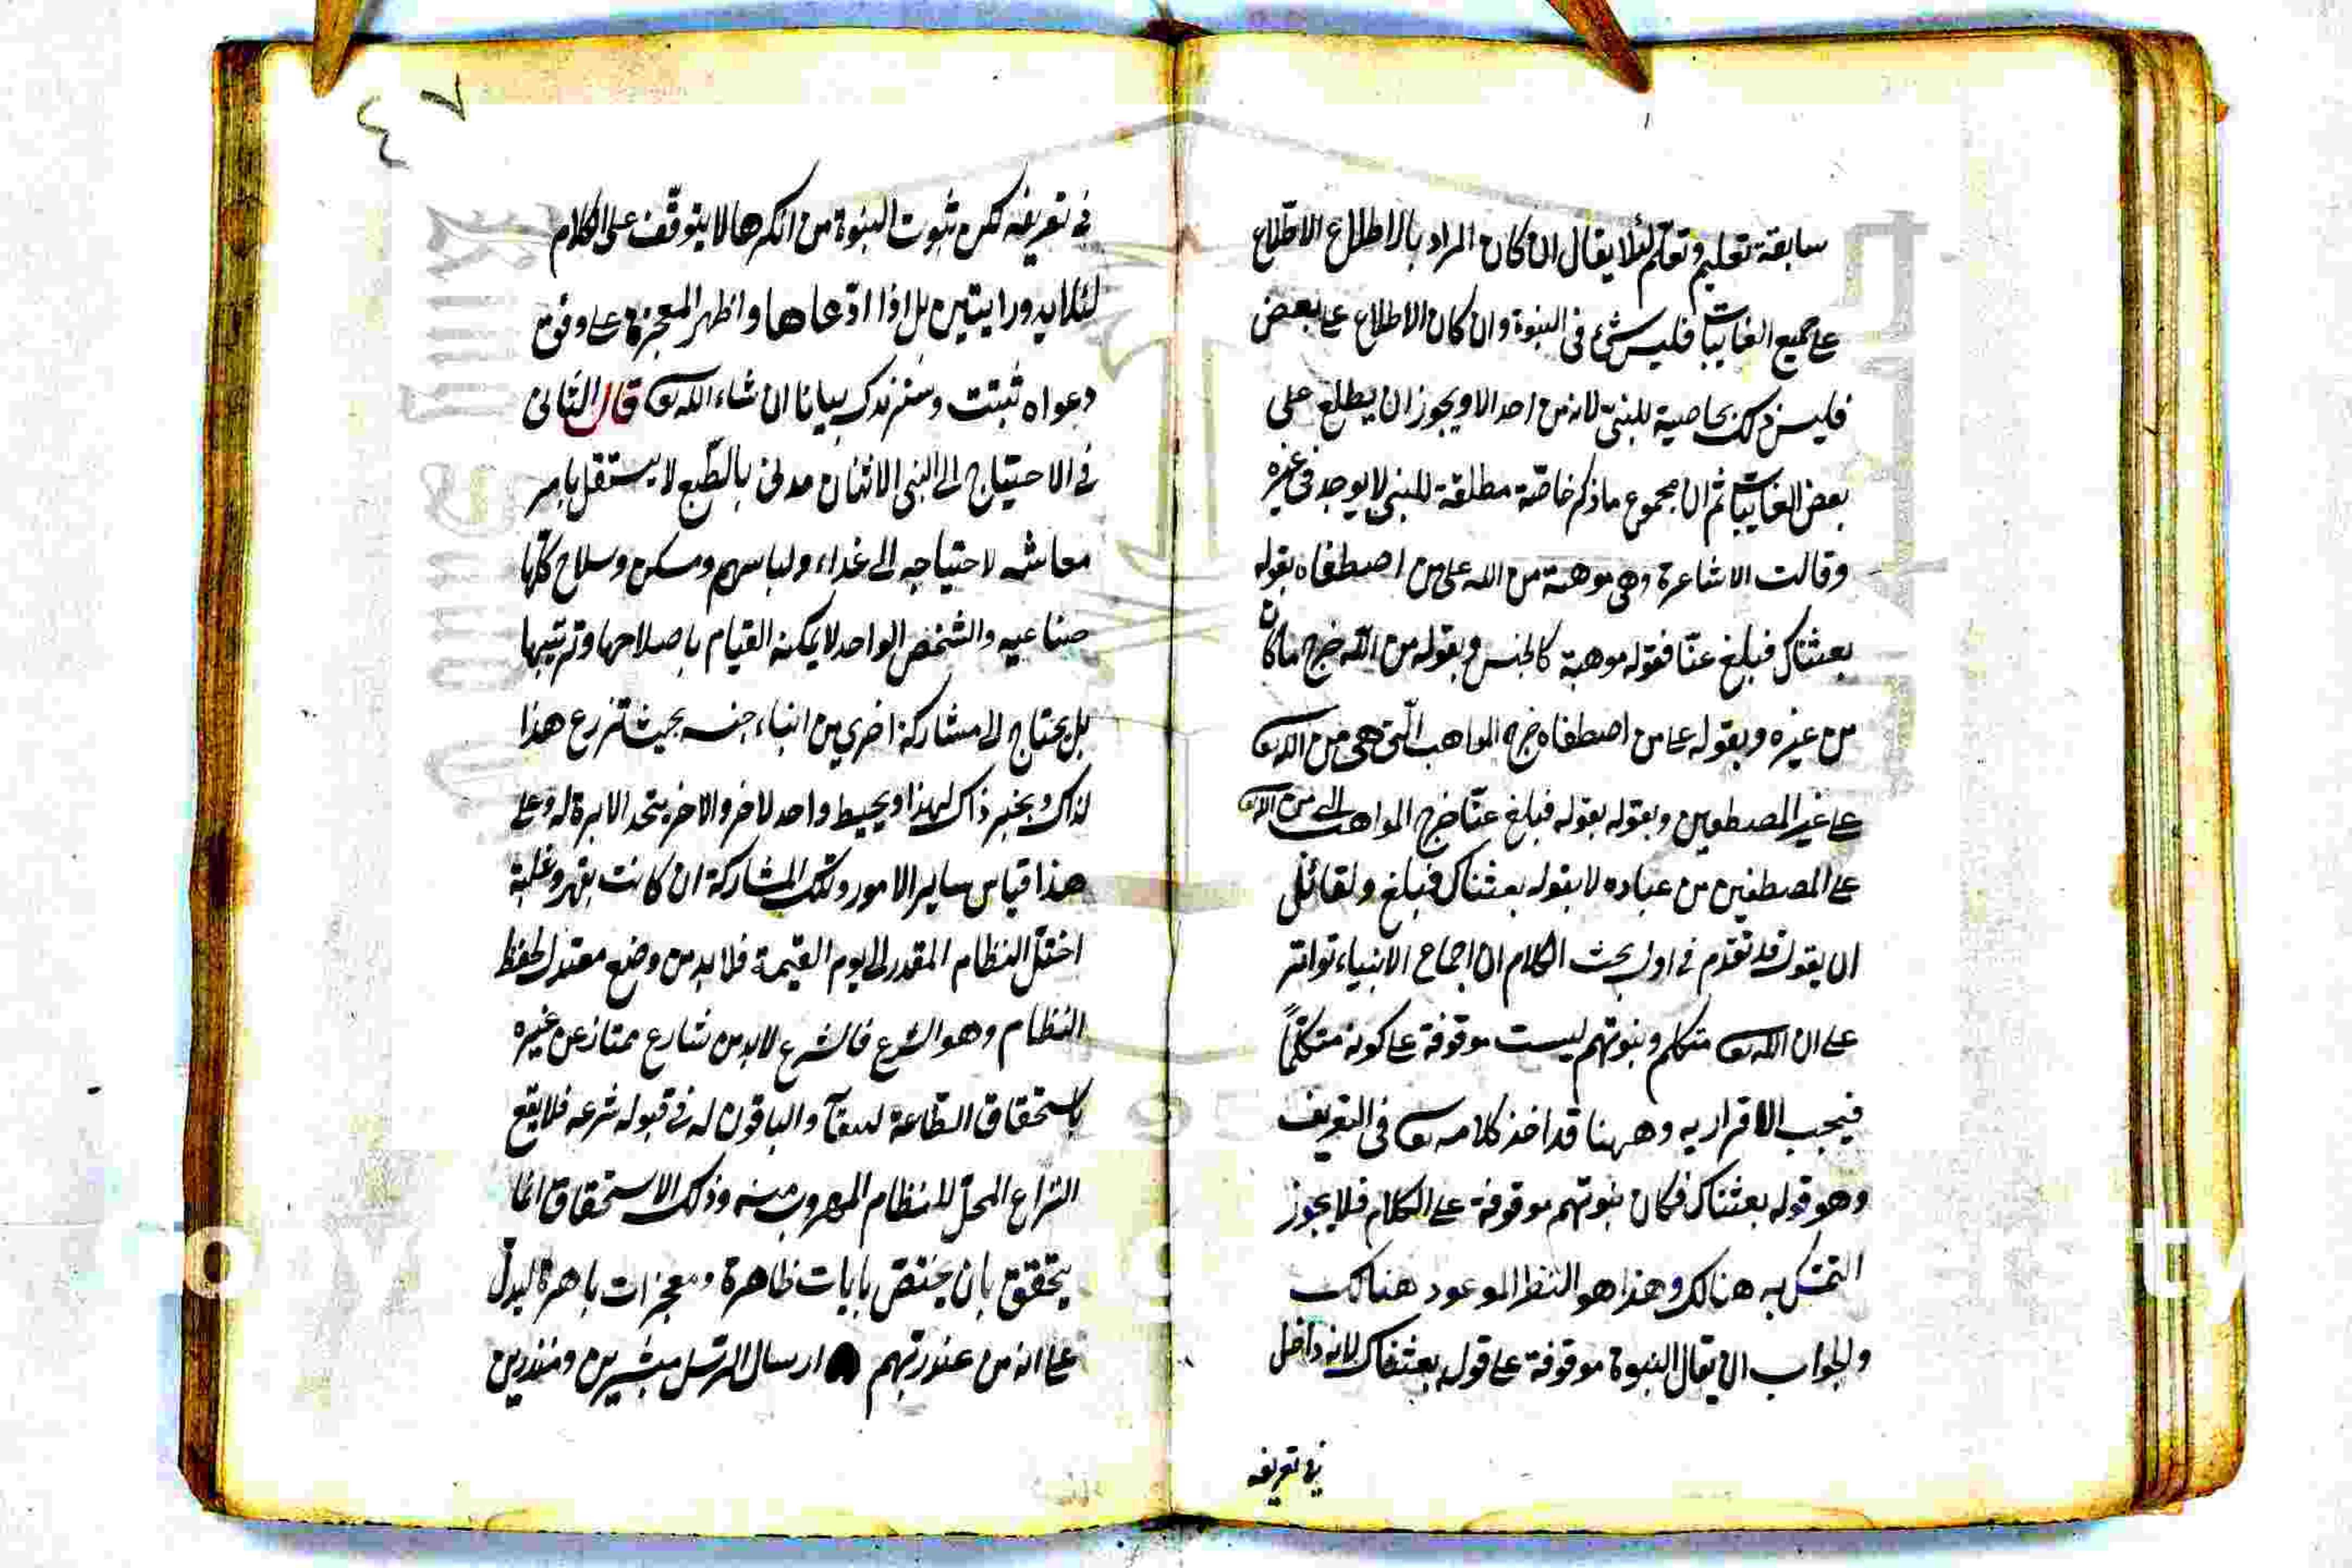 سابقة تعليم وتعلم لئلا يقال ان كان المراد بالاطلاع الاطلاع
على جميع الغايبات فليس شئ فى النبوة وان كان الاطلاع على بعض
فليس ذلك بخاصية للنبى لانه من احد الا ويجوز ان يطلع على
بعض الغايبات ثم ان مجموع ما ذكر خاصة مطلقة للنبى لا يوجد فى غيره
وقالت الاشاعرة وهى موهبة من الله على من اصطفاه بقوله
بعثناك فبلغ عنا فقوله موهبة كالجنس وبقوله من الله خرج ما كان
من غيره وبقوله على من اصطفاه خرج المواهب التى هى من الله تعا
على غير المصطفين وبقوله بقوله فبلغ عنا خرج المواهب من الله
على المصطفين من عباده لا بقوله بعثناك فبلغ ولقائل
ان يقول قد تقدم فى اول بحث الكلام ان اجماع الانبياء تواتر
على ان الله تعا متكلم ونبوتهم ليست موقوفة على كونه متكلماً
فيجب الاقرار به وههنا قد اخذ كلامه تعا فى التعريف
وهو قوله بعثناك فكان نبوتهم موقوفة على الكلام فلا يجوز
التمسك به هنالك وهذا هو النظر الموعود هنالك
والجواب ان يقال النبوة موقوفة على قوله بعثناك لانه داخل
فى تعريفه
فى تعريفه لكن ثبوت النبوة من انكرها لا يتوقف على الكلام
لئلا يدور اذا ادّعاها واظهر المعجزة على وفق
دعواه ثبتت وسنزيدك بيانا ان شاء الله تعا قال الثانى
فى الاحتياج الى النبى الانسان مدنى بالطبع لا يستقل بامر
معاشه لاحتياجه الى غداء ولباس ومسكن وسلاح كلها
صناعيه والشخص الواحد لا يمكنه القيام باصلاحها وترتيبها
بل يحتاج الى مشاركة اخرى من ابناء جنسه بحيث تزرع هذا
لذاك ويخبز ذاك لهذا ويخيط واحد لاخر والاخر يتخد الابرة له وعلى
هذا قياس ساير الامور وتلك المشاركة ان كانت بقهر وغلبة
اختل النظام المقدر الى يوم القيمة فلا بد من وضع معتدل لحفظ
النظام وهو الشرع فالشرع لا بد من شارع ممتاز عن غيره
باستحقاق الطاعة والباقون له فى قبوله شرعه فلا يقع
النزاع المخل للانتظام المهروب منه وذلك الاستحقاق انما
يتحقق بان يختص بايات ظاهرة ومعجزات باهرة ليدل
على انه من عند ربهم ارسال الرسل مبشرين ومنذرين